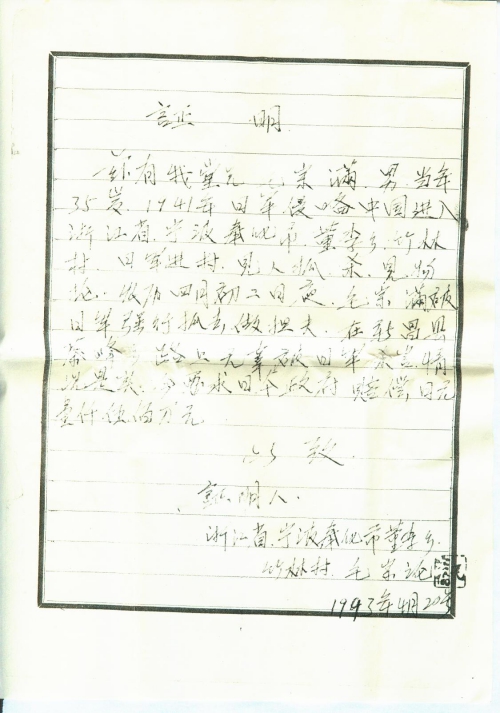 証 明
兹有我堂兄毛宗满.男.当年
35岁.1941年日军侵略中国进入
浙江省.宁波奉化市.董李乡.竹林
村.日军进村.见人抓.杀.见物
抢.农历四月初二日夜.毛宗满被
日军强行抓去.做担夫.在新昌县
路上无辜被日军
况是实.要求日本政府赔偿.日元
伍佰万元
此致.
証明人.
浙江省.宁波奉化市董李乡.
竹林村.毛宗
1993年4月20号